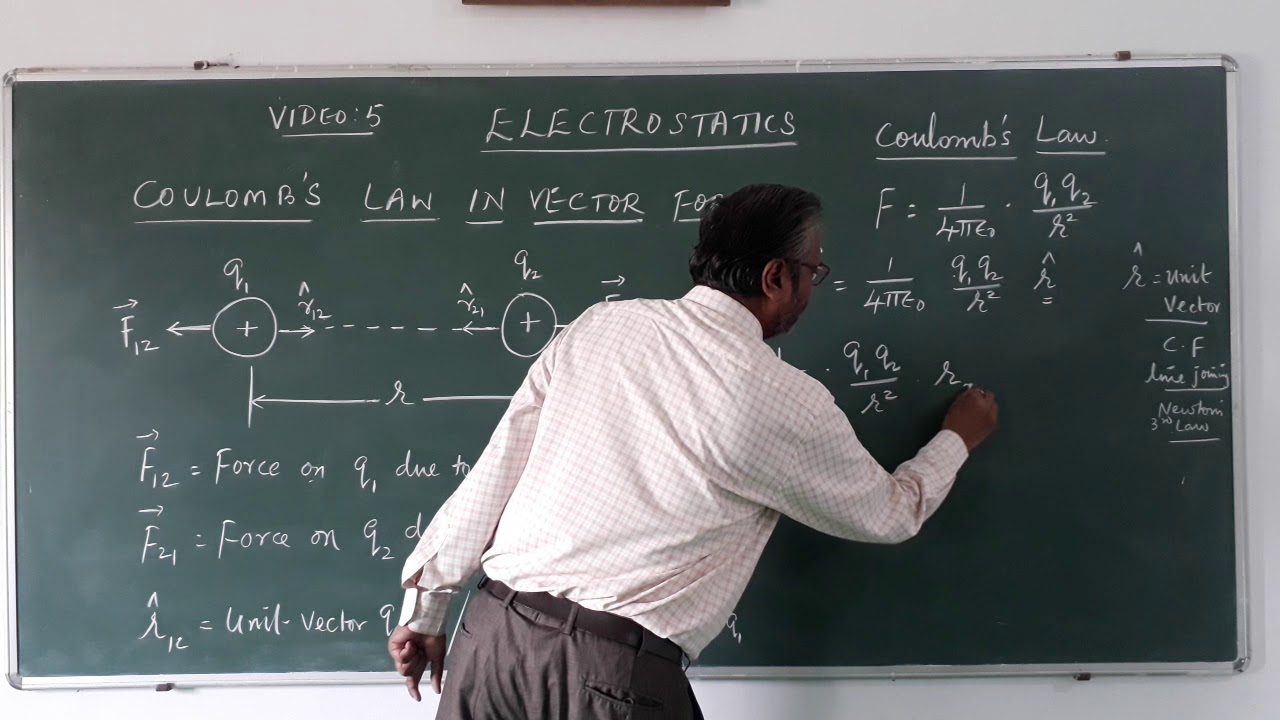 VIDEO: 5
ELECTROSTATICS
Coulomb's Law.
COULOMB'S LAW IN VECTOR
F = 1/4πϵ₀ · q₁q₂/r²
q₁
q₂
F⃗₁₂
+
r̂₁₂
r̂₂₁
+
= 1/4πϵ₀ q₁q₂/r² r̂
r̂ = Unit
Vector
C.F
line joining
Newton
3rd Law
r
· q₁q₂/r² · r
F⃗₁₂ = Force on q₁ due to
F⃗₂₁ = Force on q₂
r̂₁₂ = Unit-Vector
q₁